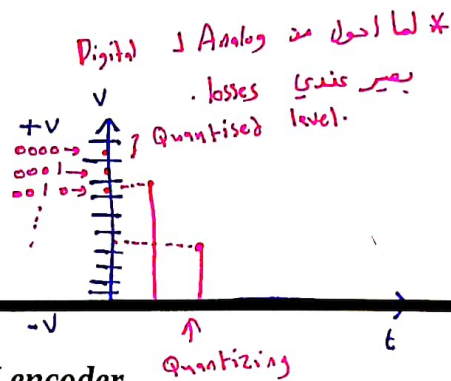 * لما احول من Analog لـ Digital
بصير عندي losses .
V
+V
Quantised level.
0000 →
0001 →
0010 →
-V
t
encoder
Quantizing